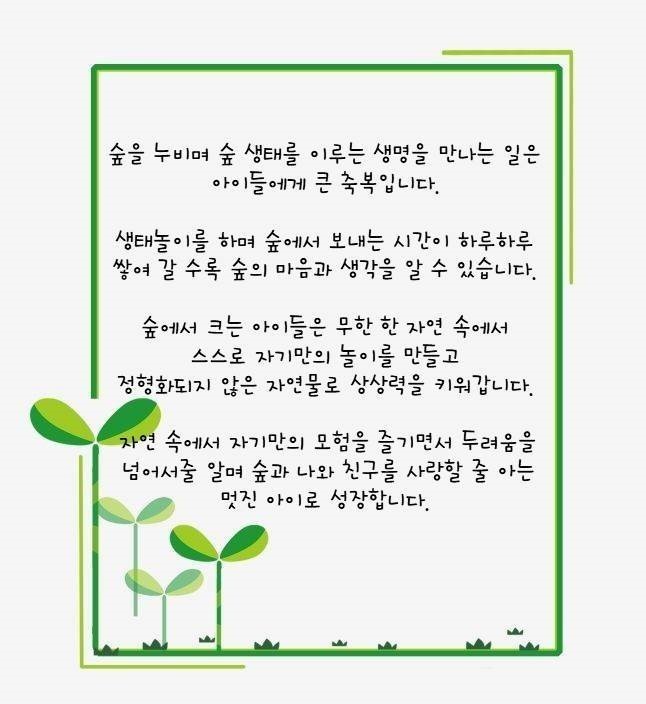 숲을 누비며 숲 생태를 이루는 생명을 만나는 일은
아이들에게 큰 축복입니다.
생태놀이를 하며 숲에서 보내는 시간이 하루하루
쌓여 갈 수록 숲의 마음과 생각을 알 수 있습니다.
숲에서 크는 아이들은 무한 한 자연 속에서
스스로 자기만의 놀이를 만들고
정형화되지 않은 자연물로 상상력을 키워갑니다.
자연 속에서 자기만의 모험을 즐기면서 두려움을
넘어서줄 알며 숲과 나와 친구를 사랑할 줄 아는
멋진 아이로 성장합니다.